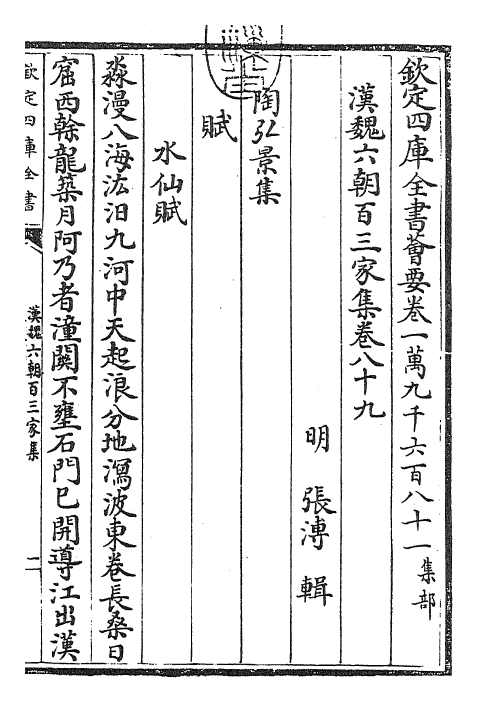 欽定四庫全書薈要卷一萬九千六百八十一集部
漢魏六朝百三家集卷八十九
明 張溥 輯
陶弘景集
賦
水仙賦
淼漫八海汯汨九河中天起浪分地瀉波東卷長桑日
窟西斡龍築月阿乃者潼關不壅石門已開導江出漢
欽定四庫全書
漢魏六朝百三家集
一